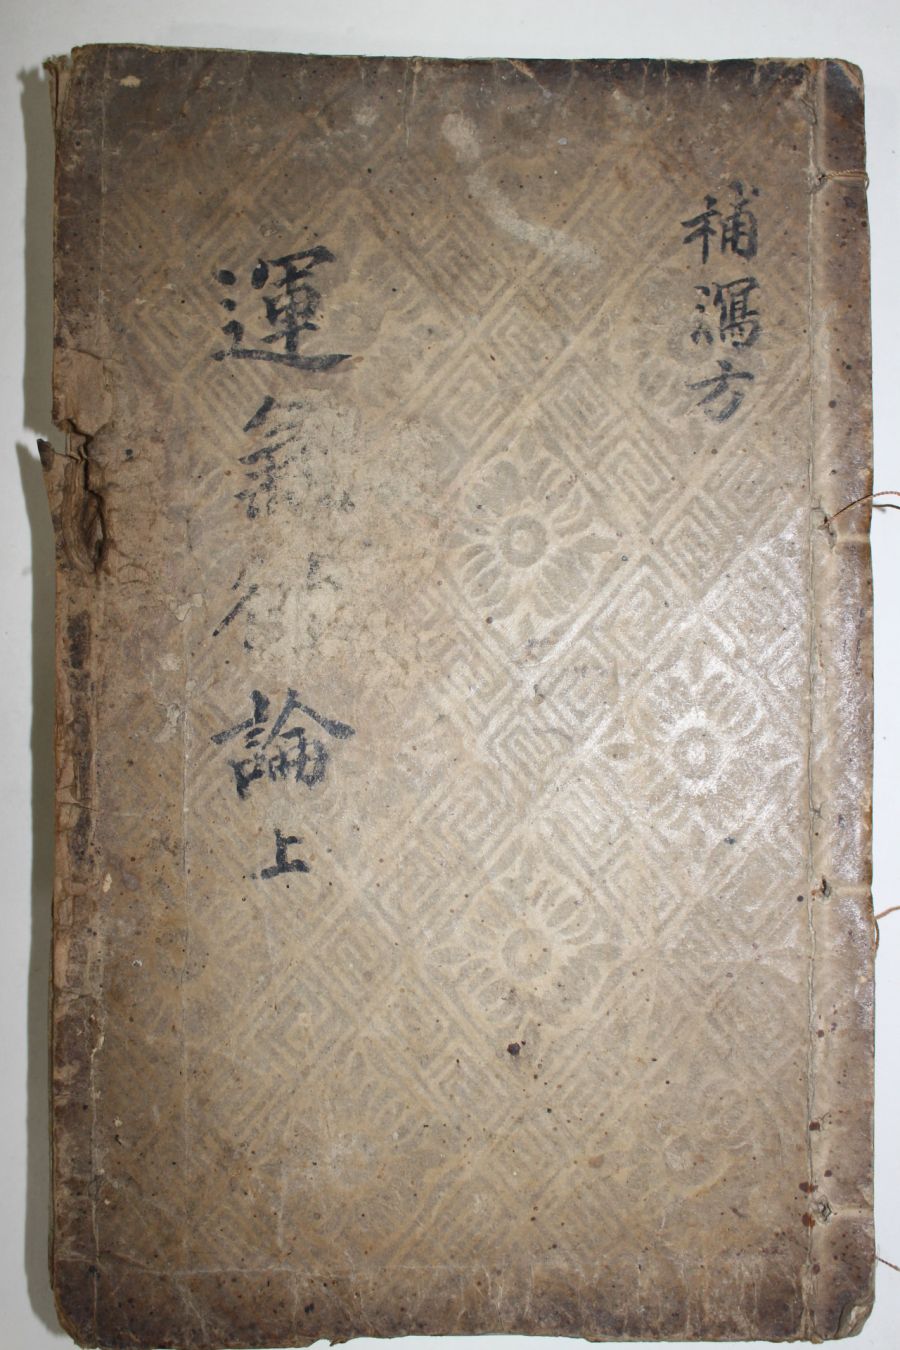 補瀉方
運論上